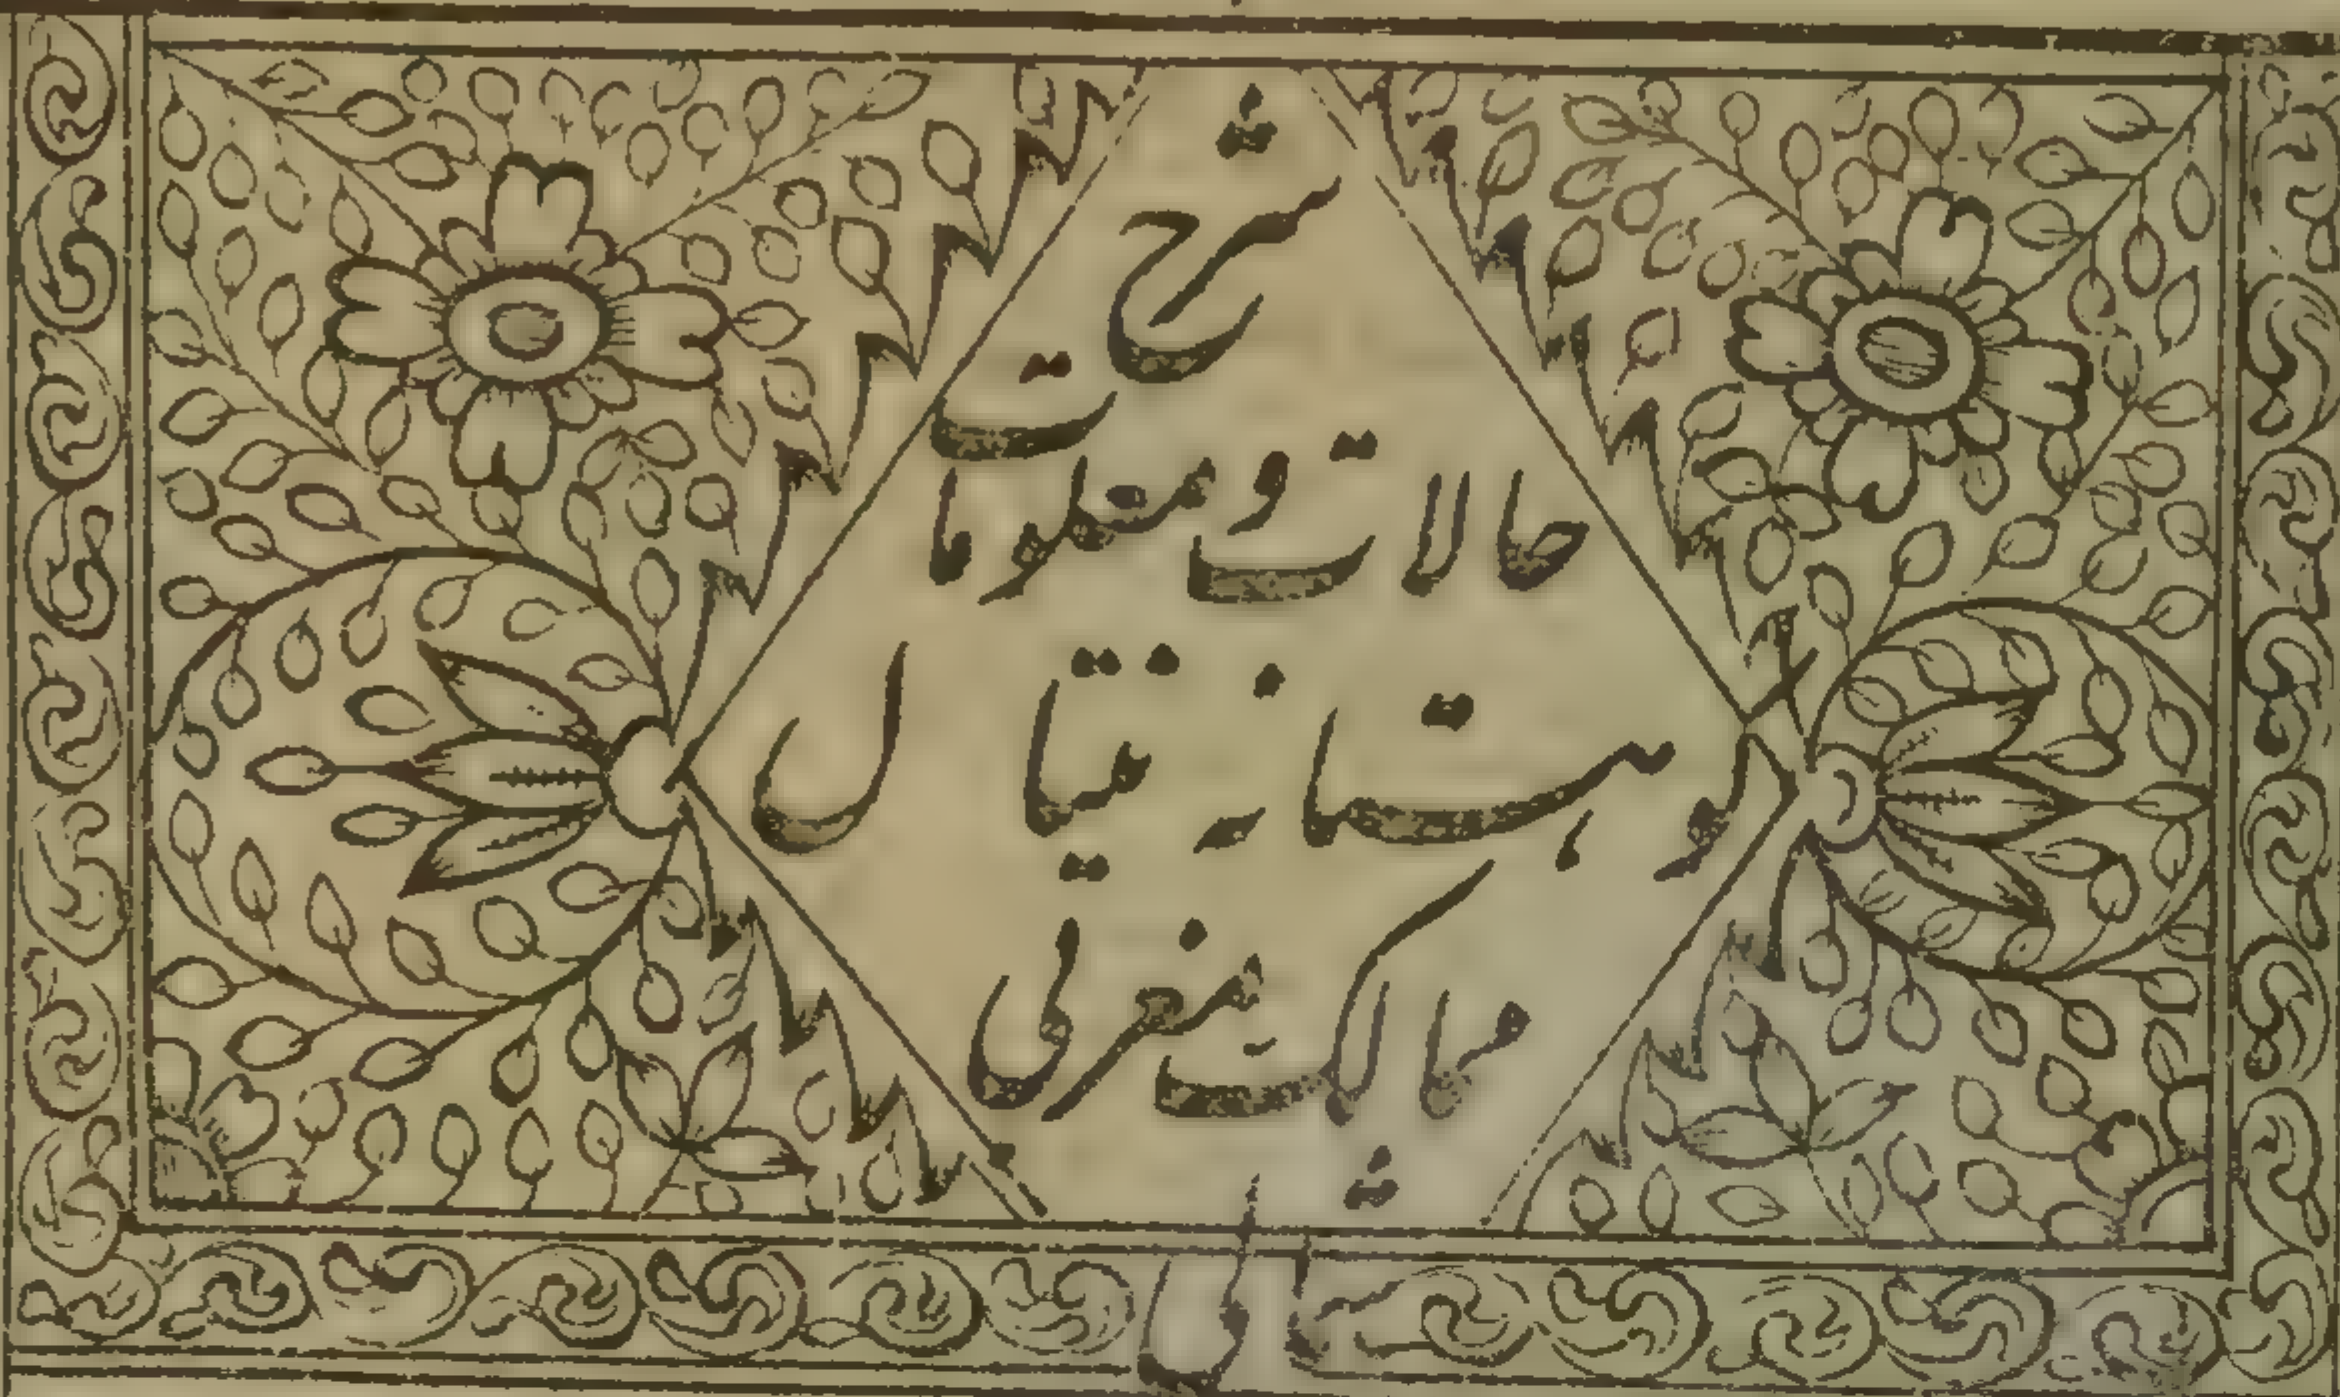 شرح
حالات و معلومات
کوہستان نیتال
ممالک مغربی
شمالی